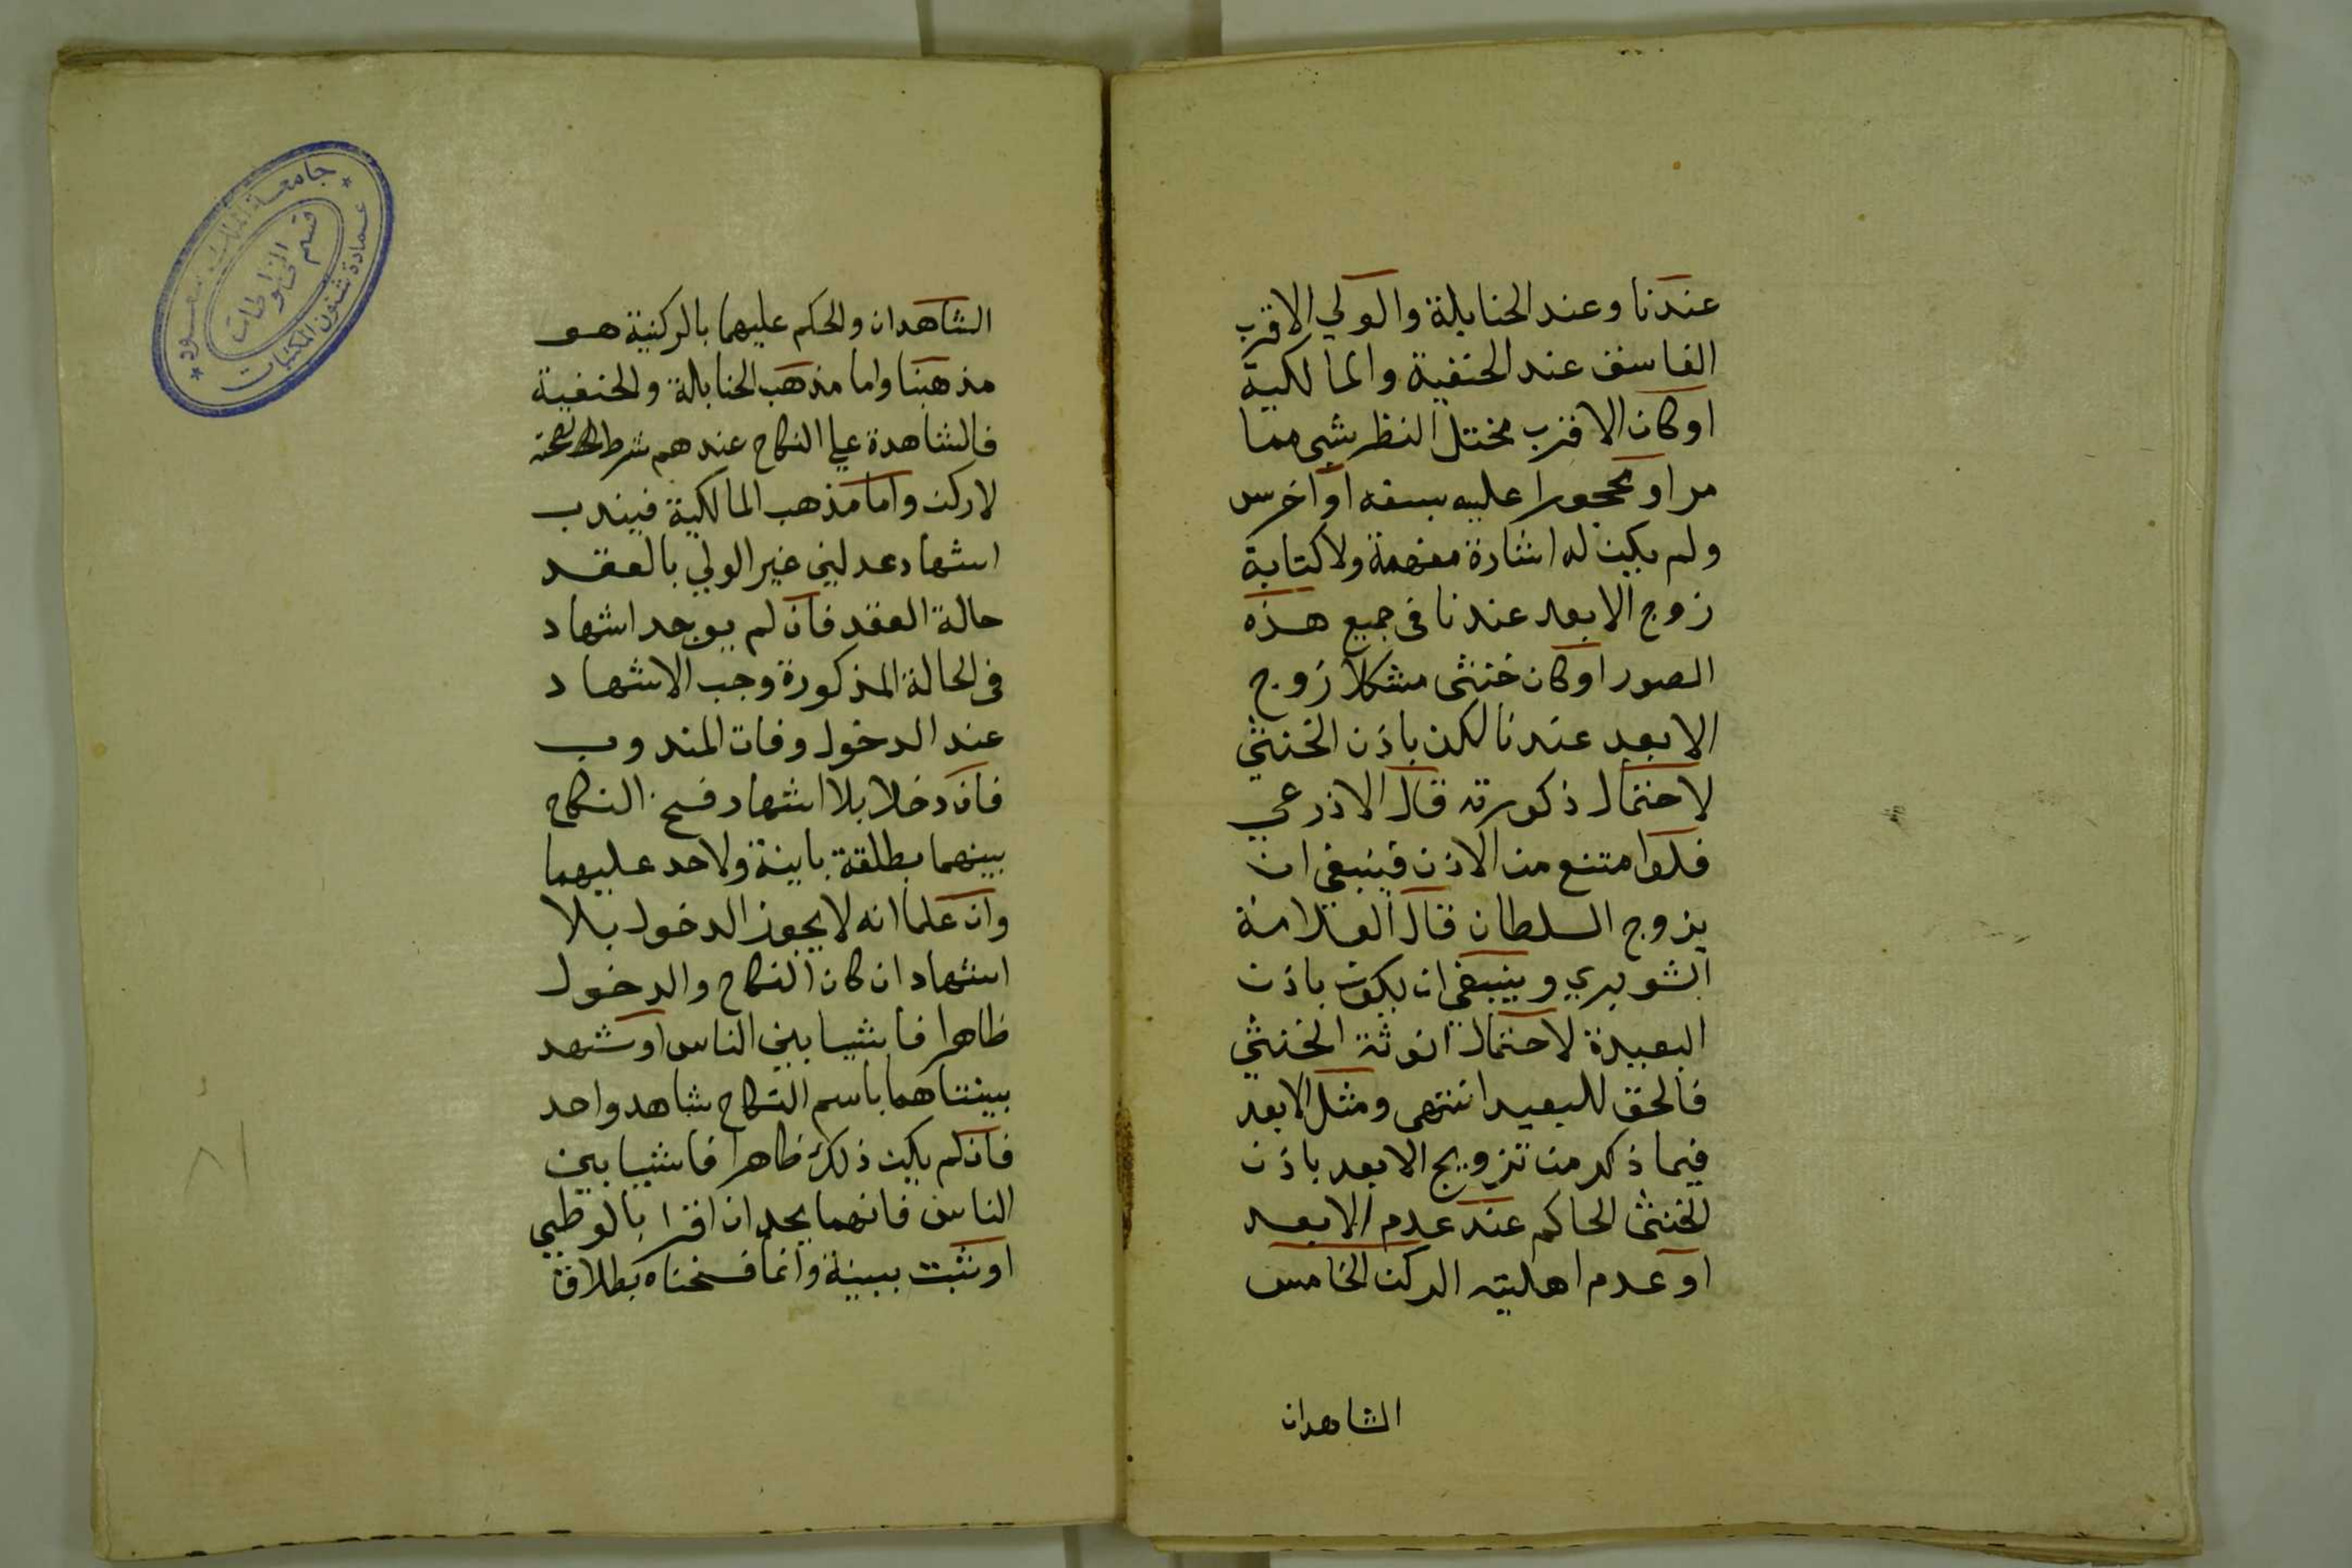 عندنا وعند الحنابلة والولي الاقرب
الفاسق عند الحنفية والمالكية
اوكان الاقرب مختل النظر بشي مما
مر او محجورا عليه بسفه او اخرس
ولم يكن له اشارة مفهمة ولا كتابة
زوج الابعد عندنا في جميع هذه
الصور اوكان خنثى مشكلا زوج
الابعد عندنا لكن باذن الخنثي
لاحتمال ذكورته قال الاذرعي
فلو امتنع من الاذن فينبغي ان
يزوج السلطان قال العلامة
الشوبري وينبغي ان يكون باذن
البعيدة لاحتمال انوثة الخنثي
فالحق للبعيد انتهى ومثل الابعد
فيما ذكر من تزويج الابعد باذن
الخنثى الحاكم عند عدم الابعد
او عدم اهليته الركن الخامس
الشاهدان
الشاهدان والحكم عليهما بالركنية هو
مذهبنا واما مذهب الحنابلة والحنفية
فالشاهدة علي النكاح عندهم شرط لصحته
لاركن واما مذهب المالكية فيندب
اشهاد عدلين غير الولي بالعقد
حالة العقد فان لم يوجد اشهاد
في الحالة المذكورة وجب الاشهاد
عند الدخول وفات المندوب
فان دخلا بلا اشهاد فسخ النكاح
بينهما بطلقة باينة ولاحد عليهما
وان علما انه لا يجوز الدخول بلا
اشهاد ان كان النكاح والدخول
ظاهرا فاشيا بين الناس او شهد
ببينتاهما باسم النكاح شاهد واحد
فان لم يكن ذلك ظاهرا فاشيا بين
الناس فانهما يحدان اقرا بالوطيي
او ثبت ببينة وانما فسخناه بطلاق
جامعة الملك سعود
عمادة شئون المكتبات
قسم المخطوطات
٨١